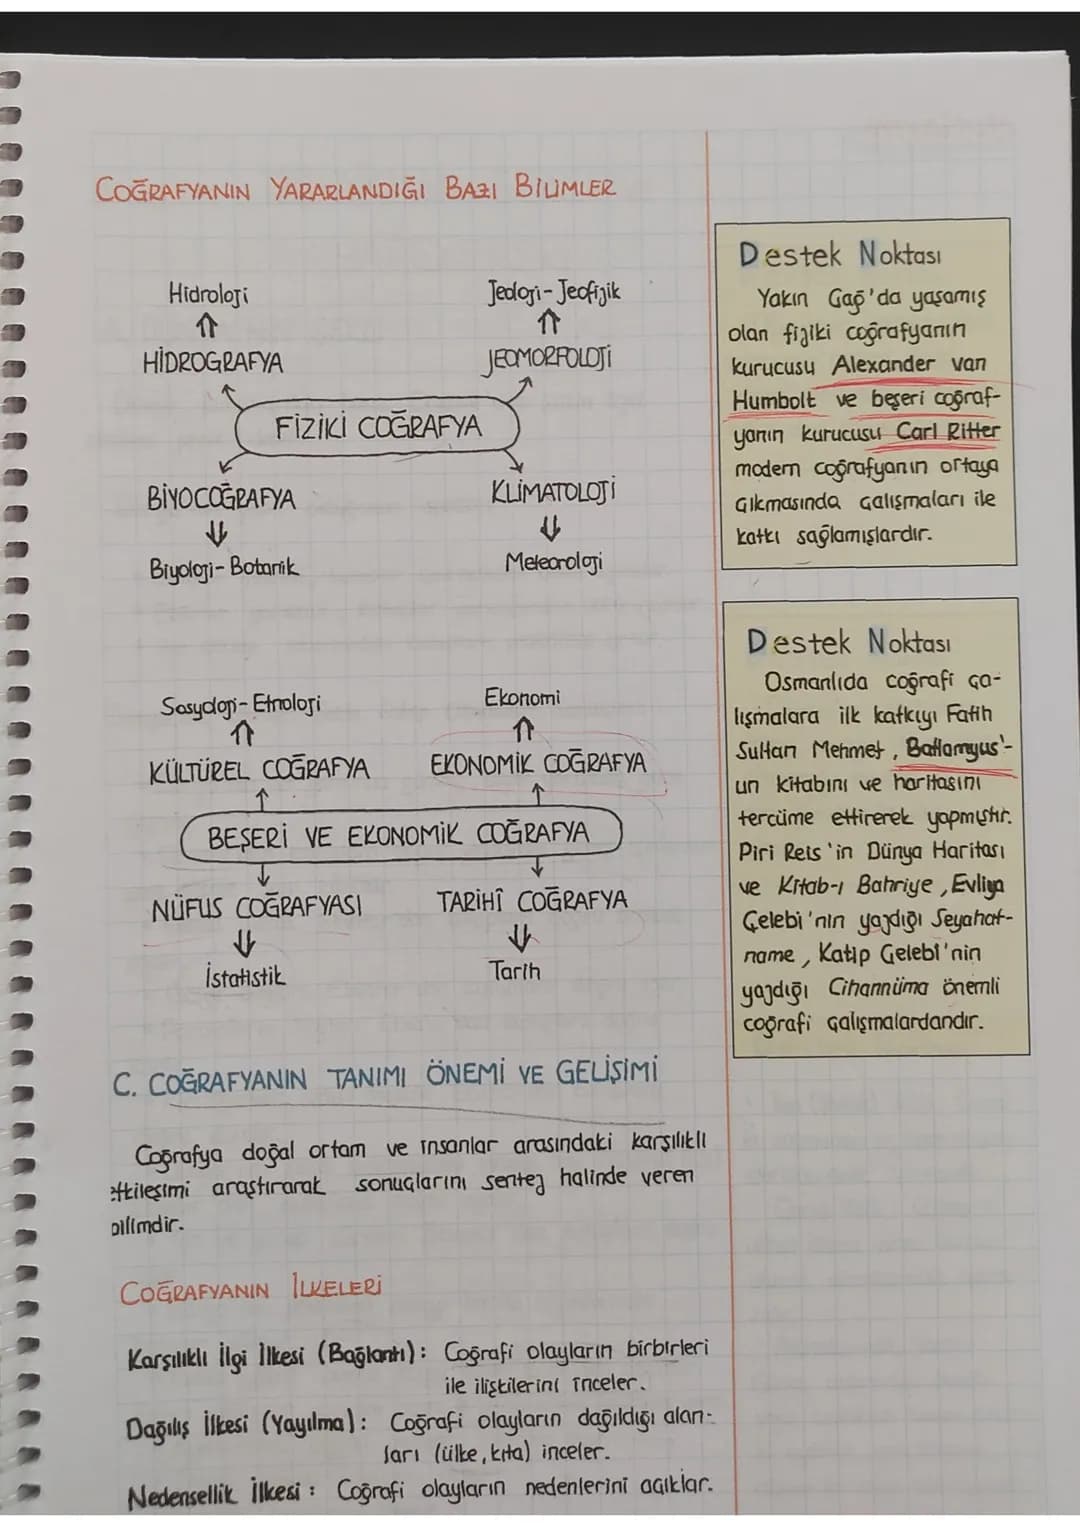 COĞRAFYANIN YARARLANDIĞI BAZI BİLİMLER
Hidroloji
Jeoloji-Jeofizik
HİDROGRAFYA
JEOMORFOLOJİ
FİZİKİ COĞRAFYA
BİYOCOĞRAFYA
KLİMATOLOJİ
Biyoloji-Botanik
Meteoroloji
Sosyoloji-Etnoloji
Ekonomi
KÜLTÜREL COĞRAFYA
EKONOMİK COĞRAFYA
BEŞERİ VE EKONOMİK COĞRAFYA
NÜFUS COĞRAFYASI
TARİHÎ COĞRAFYA
İstatistik
Tarih
C. COĞRAFYANIN TANIMI ÖNEMİ VE GELİŞİMİ
Coğrafya doğal ortam ve insanlar arasındaki karşılıklı
etkileşimi araştırarak sonuçlarını sentez halinde veren
bilimdir.
COĞRAFYANIN İLKELERİ
Karşılıklı İlgi İlkesi (Bağlantı): Coğrafi olayların birbirleri
ile ilişkilerini inceler.
Dağılış İlkesi (Yayılma): Coğrafi olayların dağıldığı alan-
ları (ülke, kıta) inceler.
Nedensellik İlkesi: Coğrafi olayların nedenlerini açıklar.
Destek Noktası
Yakın Çağ'da yaşamış
olan fiziki coğrafyanın
kurucusu Alexander van
Humbolt ve beşeri coğraf-
yanın kurucusu Carl Ritter
modern coğrafyanın ortaya
çıkmasında çalışmaları ile
katkı sağlamışlardır.
Destek Noktası
Osmanlıda coğrafi ça-
lışmalara ilk katkıyı Fatih
Sultan Mehmet, Batlamyus'-
un kitabını ve haritasını
tercüme ettirerek yapmıştır.
Piri Reis'in Dünya Haritası
ve Kitab-ı Bahriye, Evliya
Çelebi'nin yazdığı Seyahat-
name, Katip Çelebi'nin
yazdığı Cihannüma önemli
coğrafi çalışmalardandır.